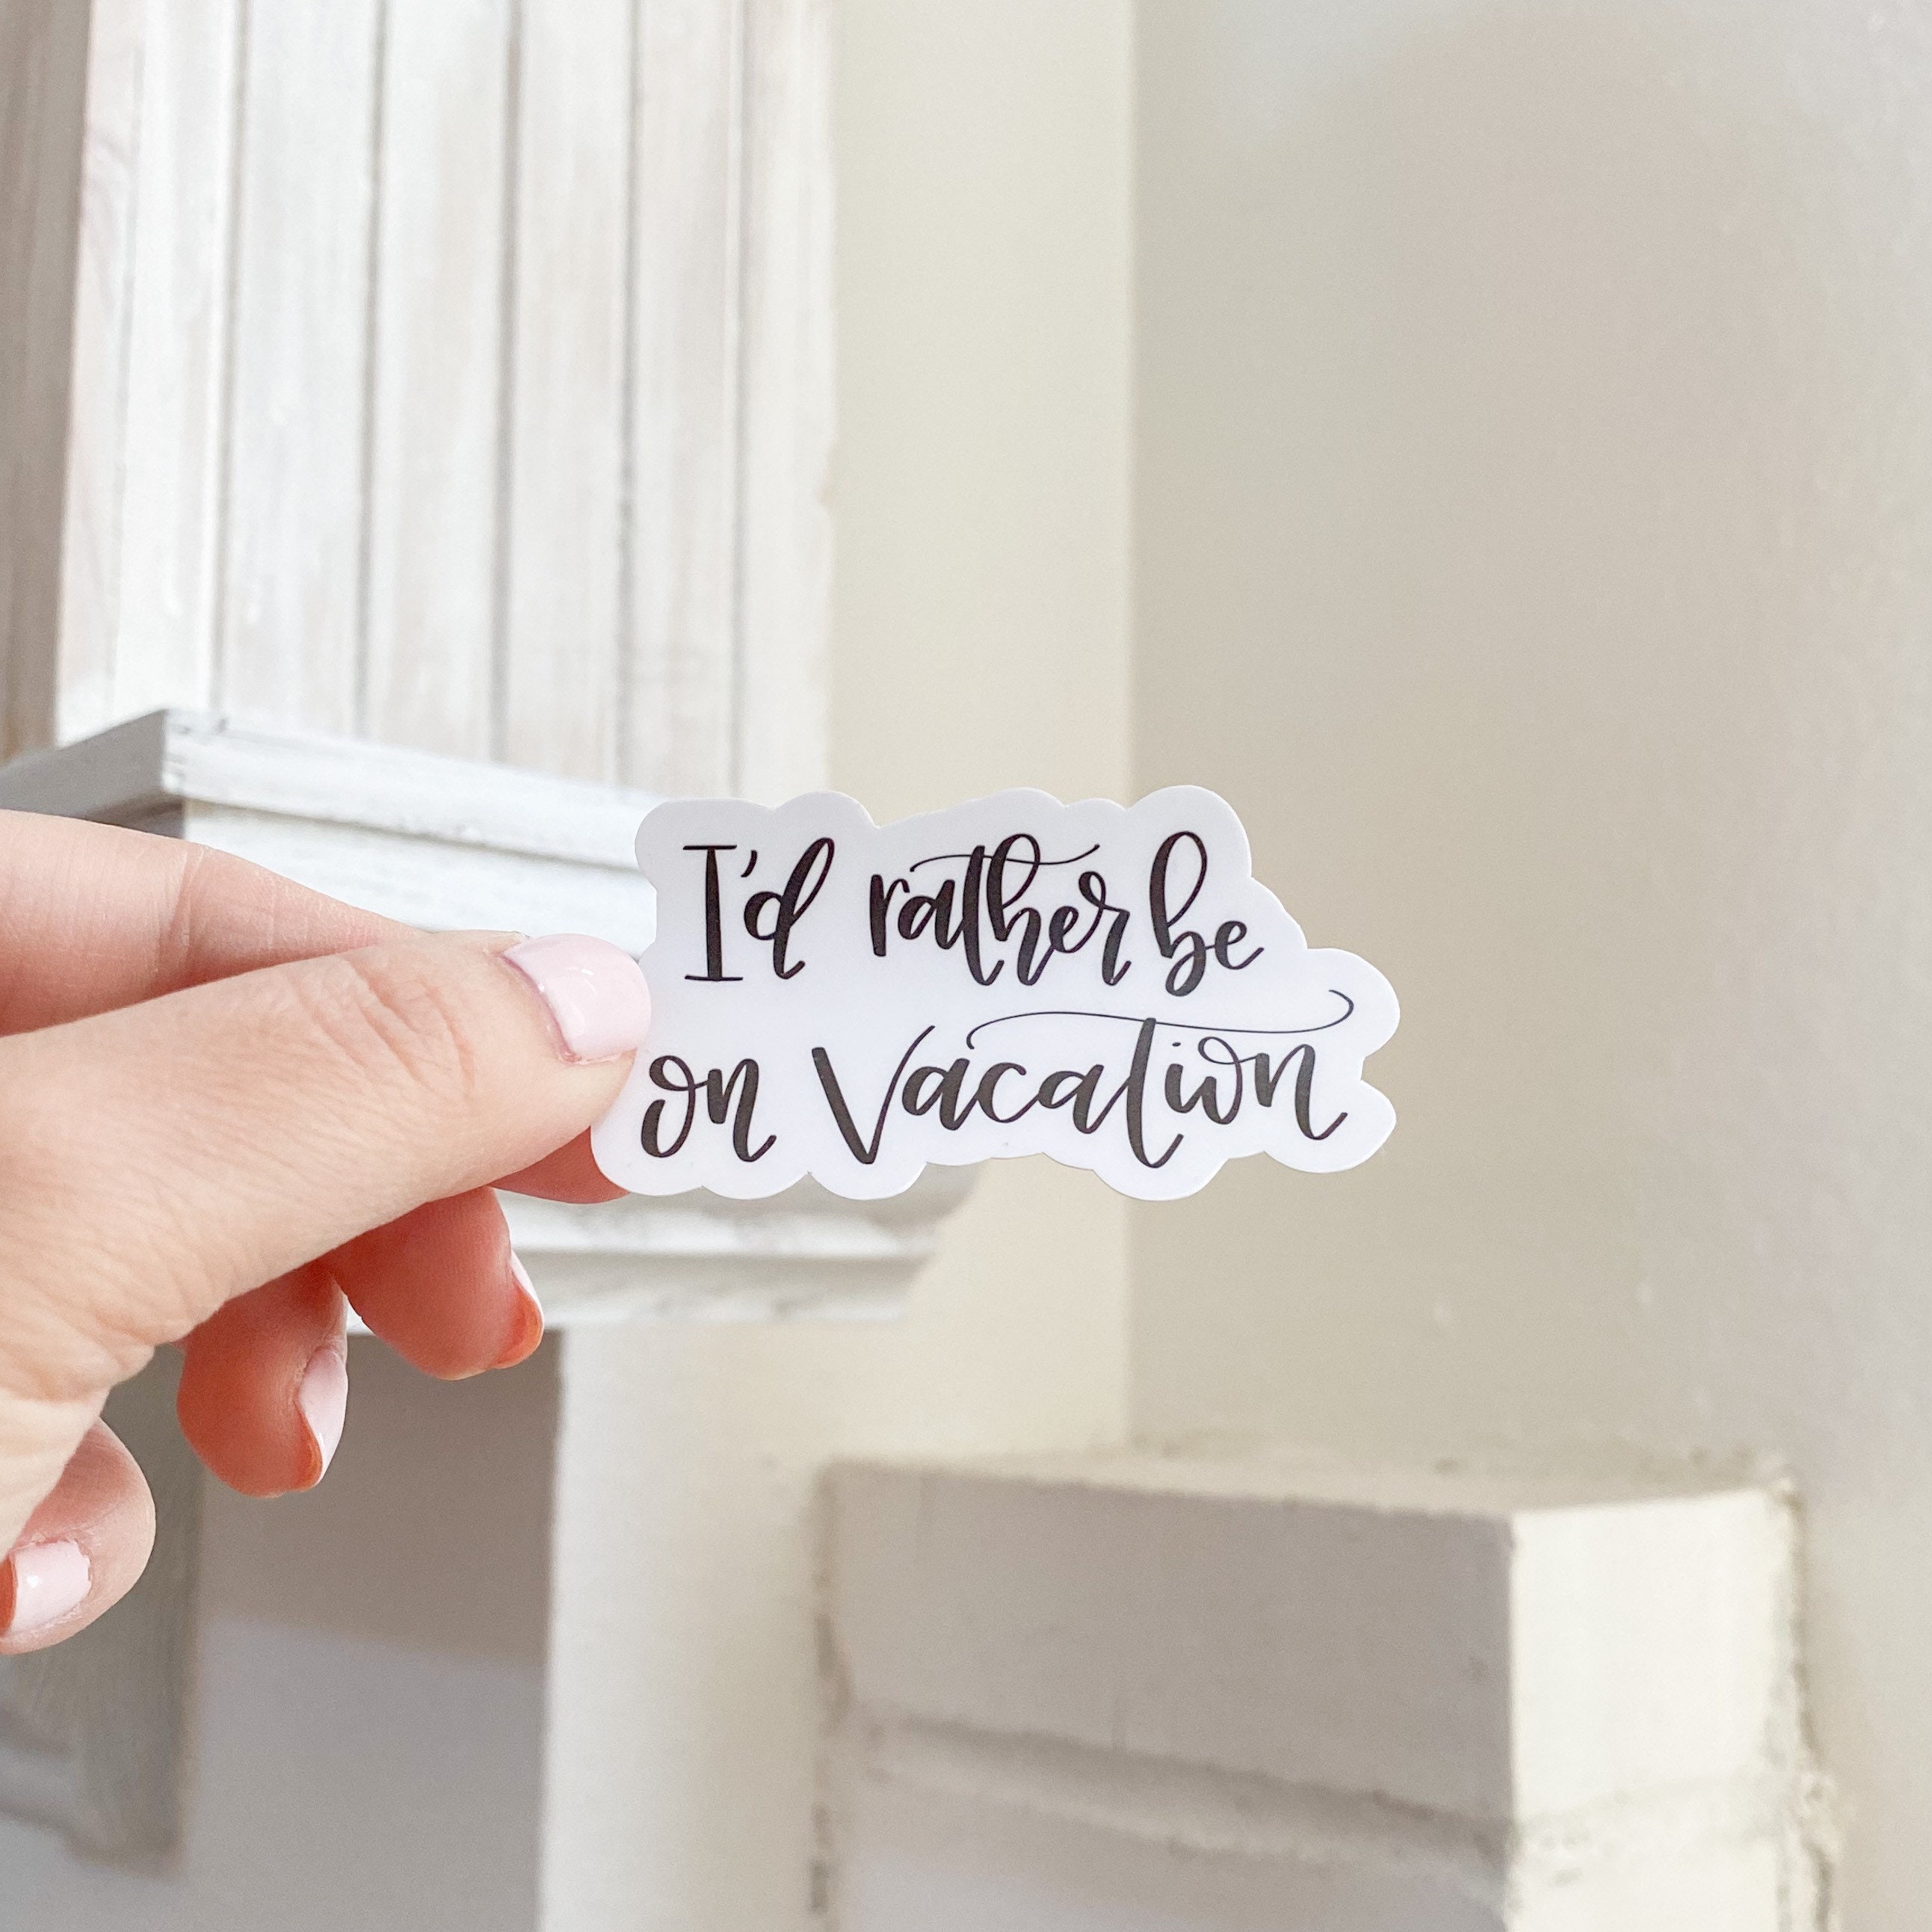 I'd rather be
on Vacation